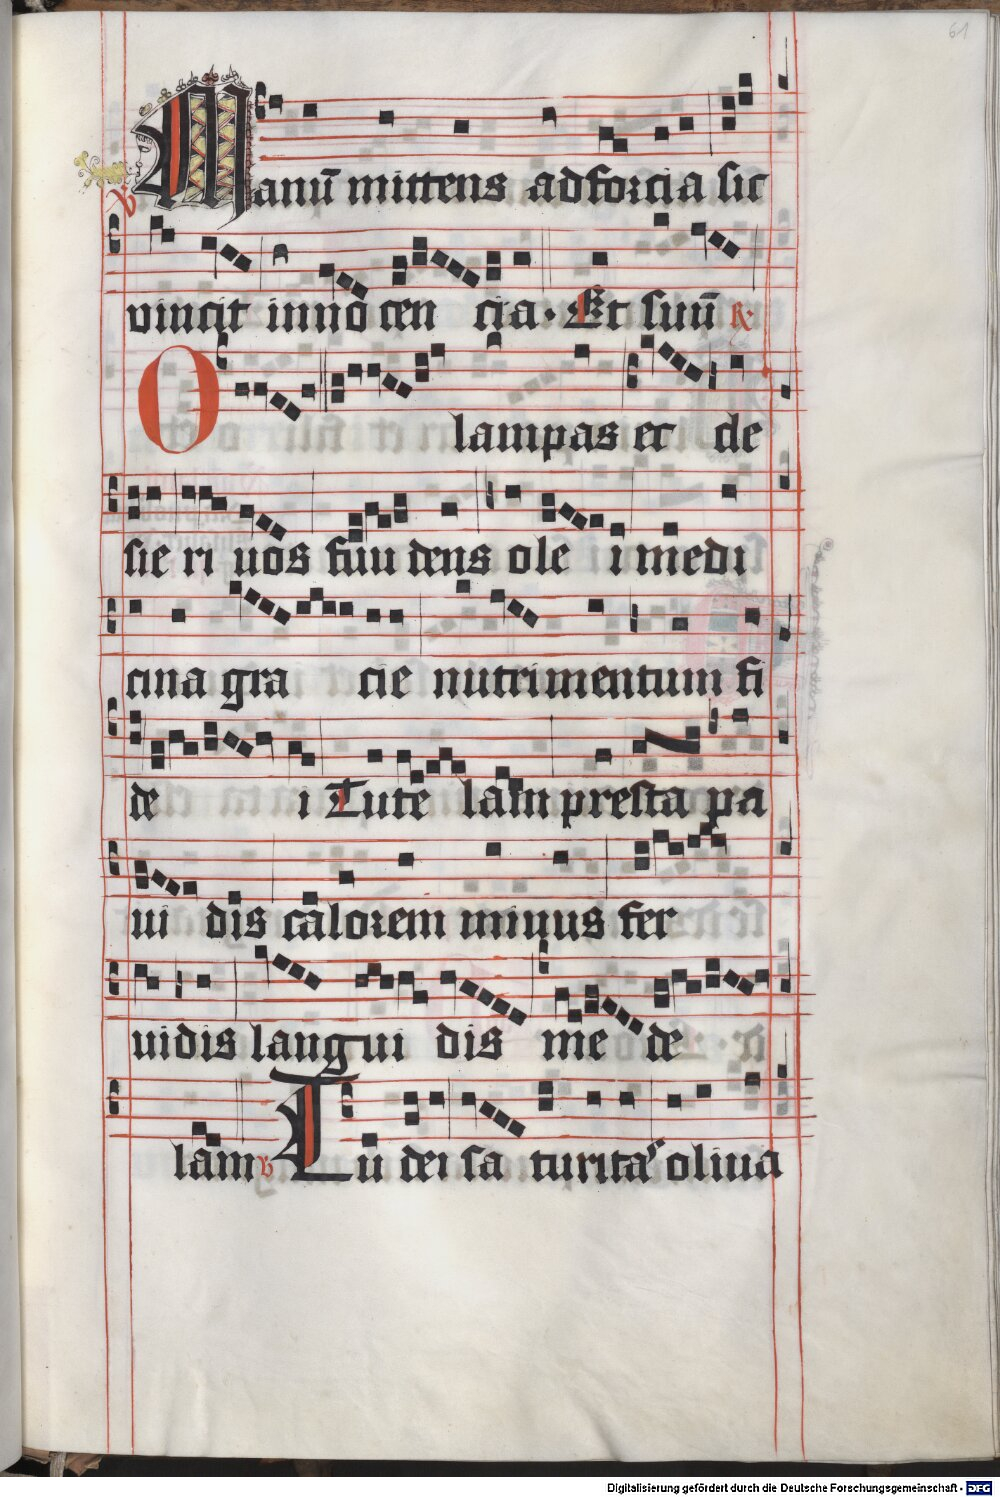 61
Manū mittens ad forcia sic
vincit inno cen cia · Et suū ℟
O lampas ec cle
sie ri uos fun dens ole i medi
cina gra cie nutrimentum fi
de i Tute lam presta pa
ui dis calorem minus fer
uidis langui dis me de
lam v Tu dei sa turitas oliua
Digitalisierung gefördert durch die Deutsche Forschungsgemeinschaft - DFG